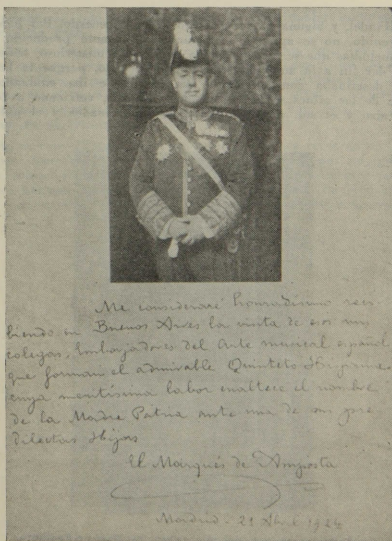 Me consideraré honradísimo reci-
biendo en Buenos Aires la visita de esos mis
colegas, Embajadores del Arte musical español
que forman el admirable Quinteto Hispania
cuya meritísima labor enaltece el nombre
de la Madre Patria ante una de sus pre-
dilectas Hijas
El Marqués de Amposta
Madrid - 21 Abril 1924